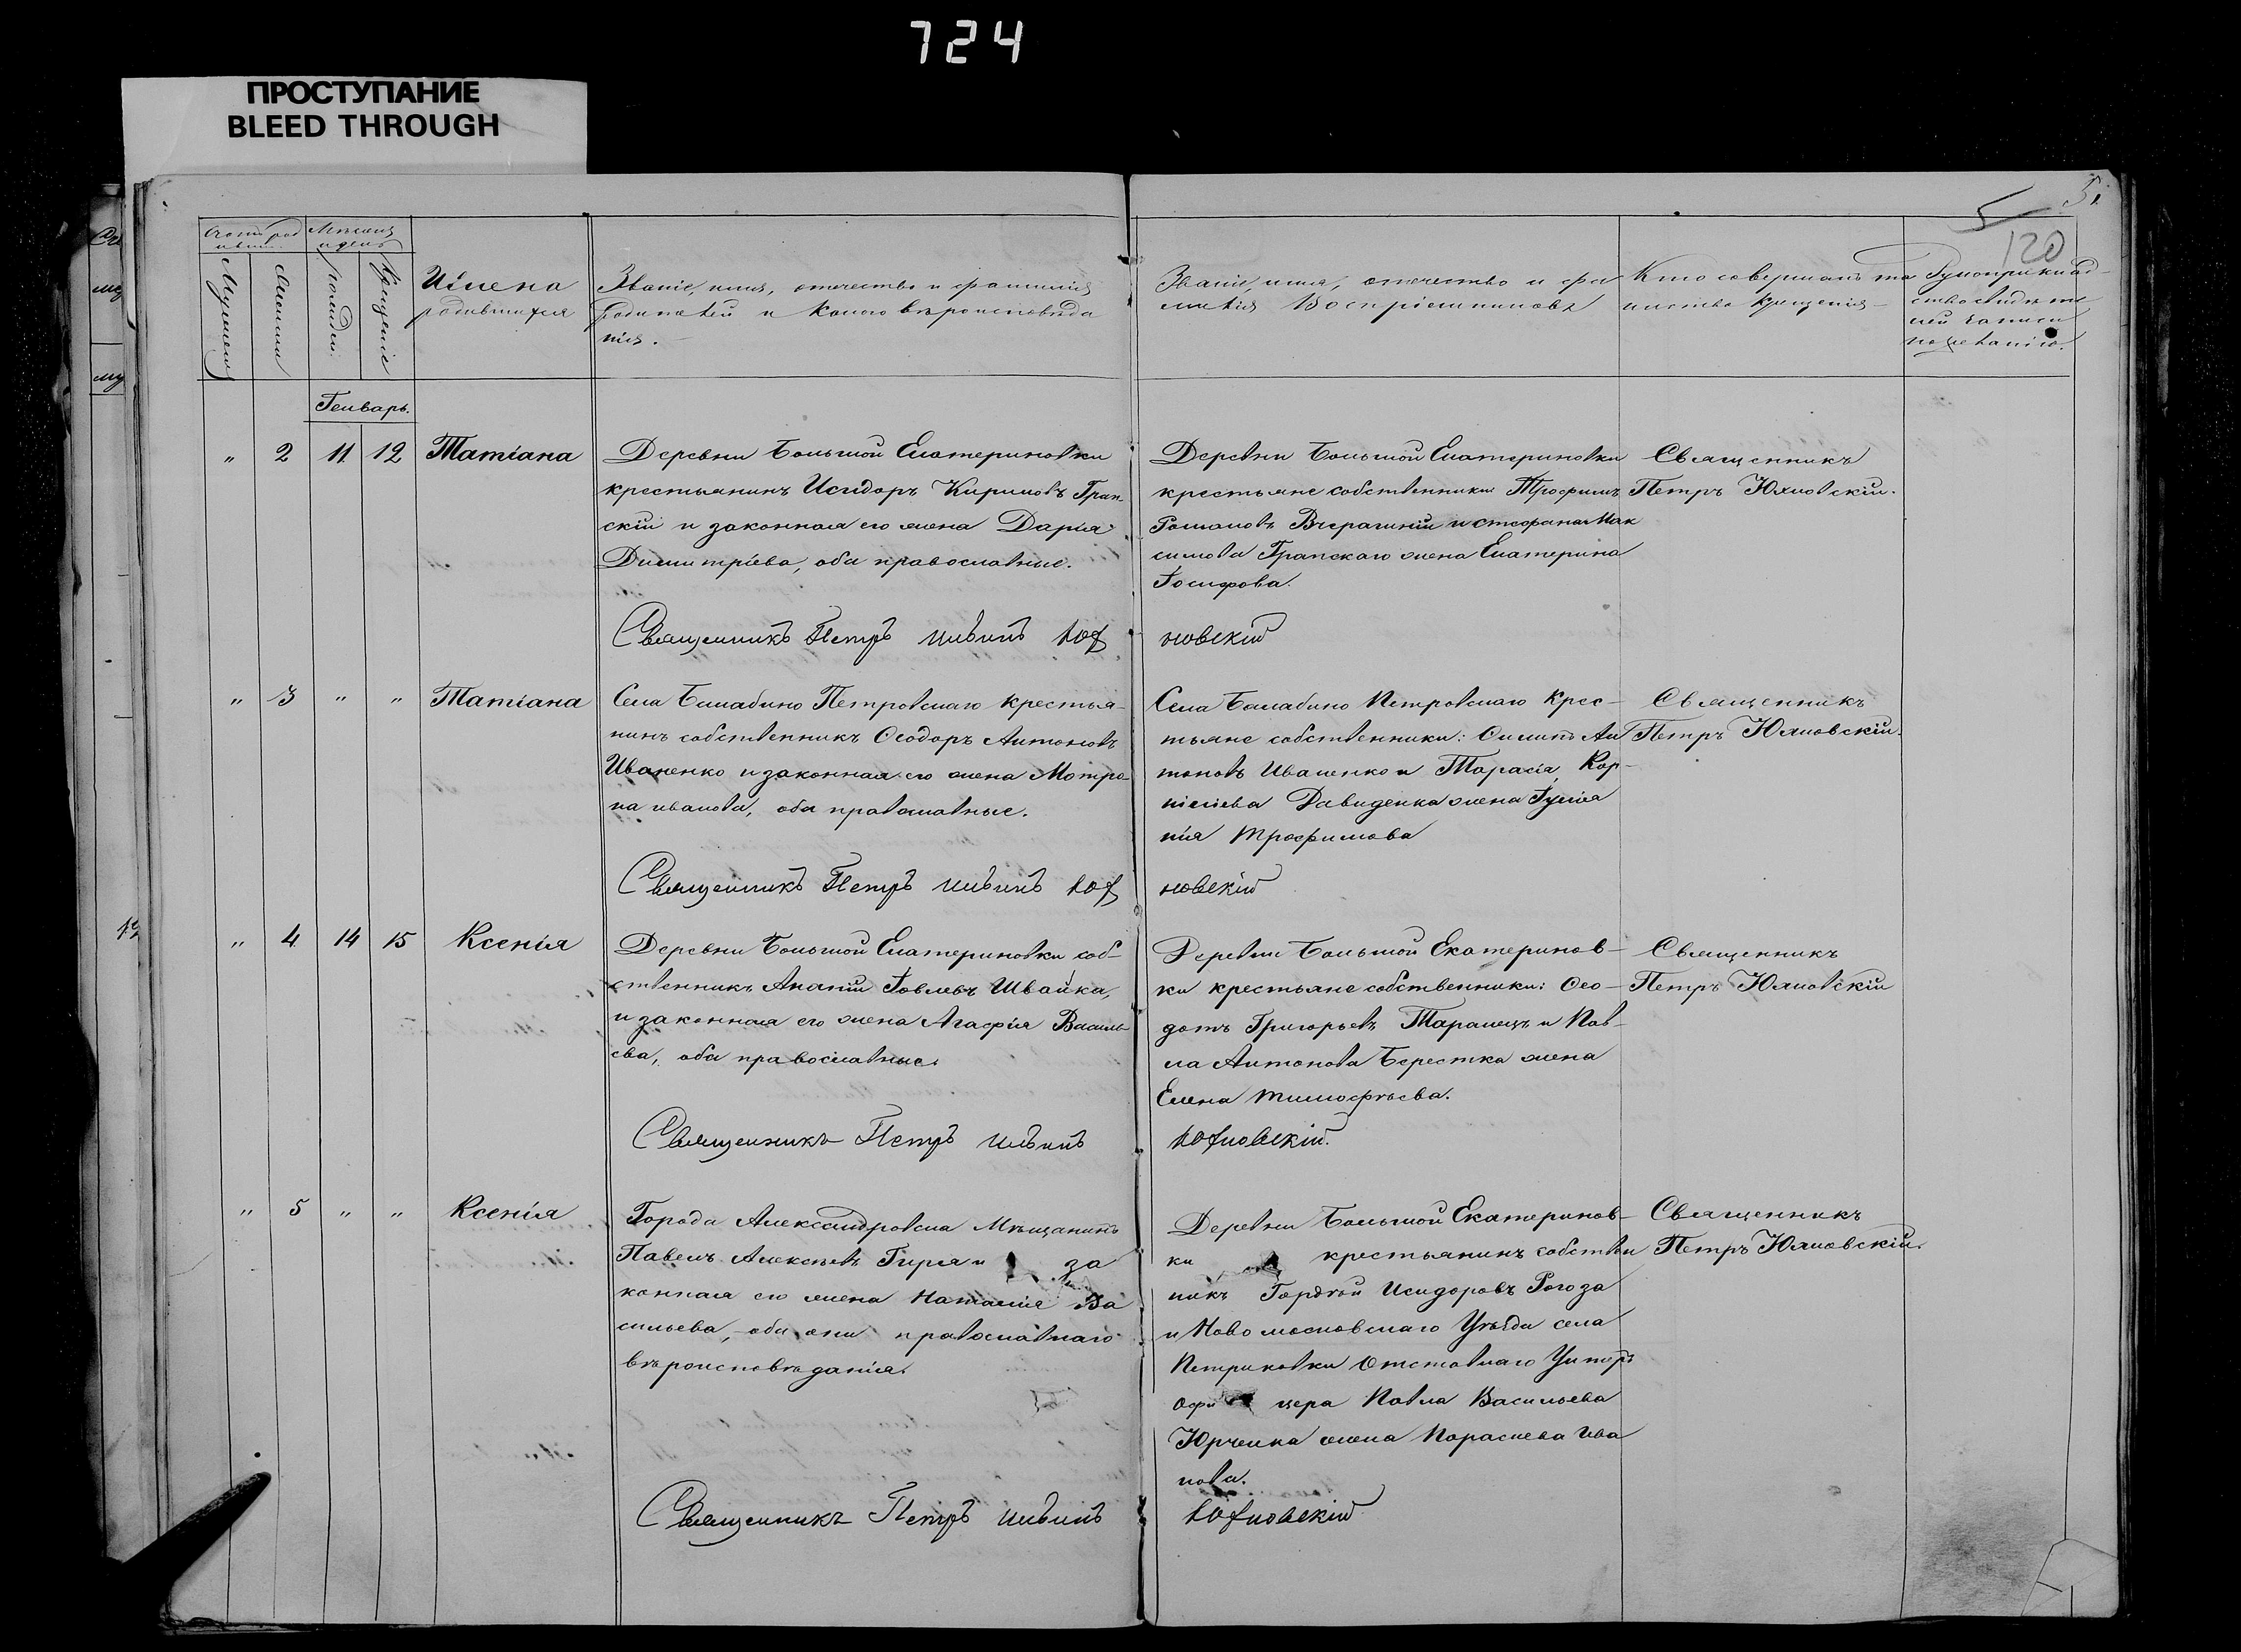 724
ПРОСТУПАНИЕ
BLEED THROUGH
5
120
Счетъ род
Мѣсяцъ
и день
Мужеска
Женска
рожден.
Крещенія
Имена
родившихся
Званіе, имя, отечество и фамилія
Родителей и какого вѣроисповѣда
нія.
Званіе, имя, отечество и фа
милія Воспріемниковъ
Кто совершалъ та
инство крещенія
Рукоприклад-
ство свидѣте
лей записи
по желанію.
Генварь.
" 2 11 12 Татіана
Деревни Большой Екатериновки
крестьянинъ Исидоръ Кириловъ Грап
скій и законная его жена Дарія
Димитріева, оба православные.
Деревни Большой Екатериновки
крестьяне собственники Трофимъ
Романовъ Вчерашній и Стефана Мак
симова Грапскаго жена Екатерина
Іосифова.
Священникъ
Петръ Юхновскій.
Священникъ Петръ Ильинъ Юх новскій
" 3 " " Татіана
Села Балабино Петровскаго крестья-
нинъ собственникъ Ѳеодоръ Антоновъ
Иваненко и законная его жена Матро-
на Иванова, оба православные.
Села Балабино Петровскаго крес-
тьяне собственники: Ан
тоновъ Иваненко и Тарасія Кор-
ніліева Давиденка жена
нія Трофимова
Священникъ
Петръ Юхновскій.
Священникъ Петръ Ильинъ Юх новскій
" 4 14 15 Ксенія
Деревни Большой Екатериновки соб-
ственникъ Ананій Іовлевъ Швайка,
и законная его жена Агафія Василь
ева, оба православные.
Деревни Большой Екатеринов-
ки крестьяне собственники: Ѳео-
дотъ Григорьевъ Таранецъ и Пав-
ла Антонова Берестка жена
Елена Тимофѣева.
Священникъ
Петръ Юхновскій
Священникъ Петръ Ильинъ Юхновскій.
" 5 " " Ксенія
Города Александровска Мѣщанинъ
Павелъ Алексѣевъ Гиря и за
конная его жена Наталія Ва
сильева, оба они православнаго
вѣроисповѣданія.
Деревни Большой Екатеринов-
ки крестьянинъ собствен
никъ Гордѣй Исидоровъ Рогоза
и Новомосковскаго Уѣзда села
Петриковки Отставнаго Унтеръ
офи цера Павла Васильева
Юрченка жена Параскева Ива
нова.
Священникъ
Петръ Юхновскій.
Священникъ Петръ Ильинъ Юхновскій